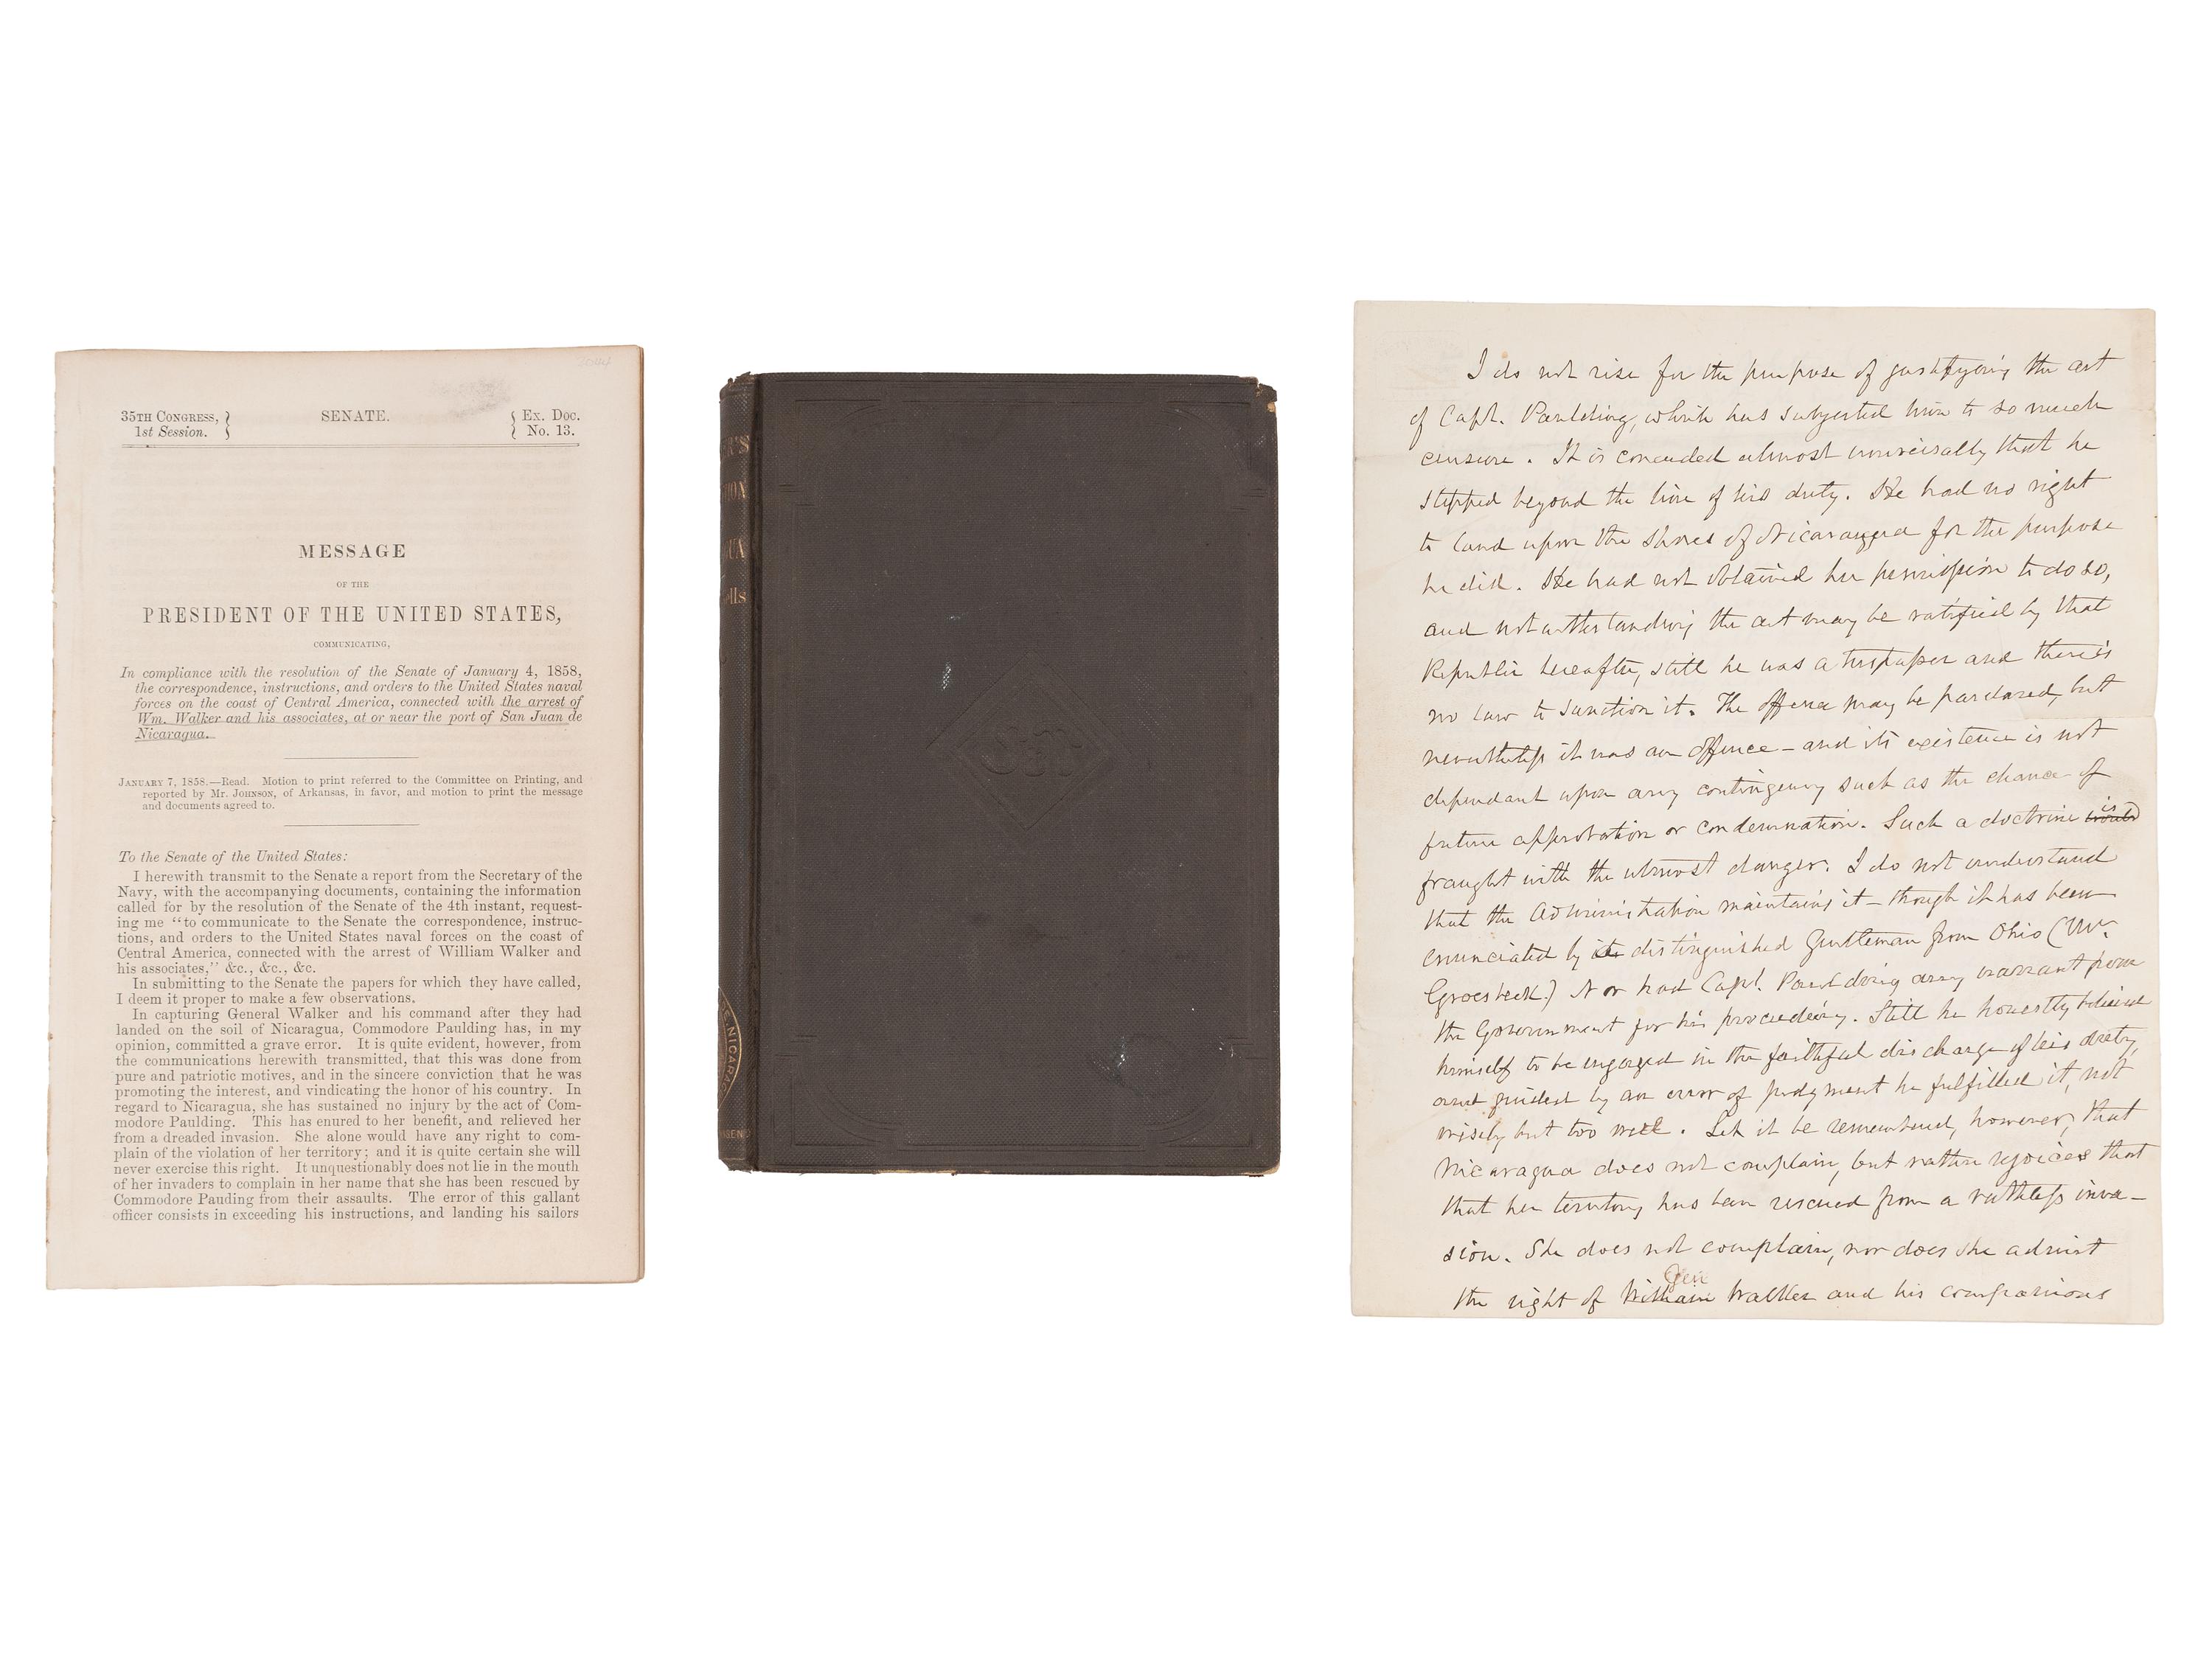 35TH CONGRESS,
1st Session.
SENATE.
Ex. Doc.
No. 13.
MESSAGE
OF THE
PRESIDENT OF THE UNITED STATES,
COMMUNICATING,
In compliance with the resolution of the Senate of January 4, 1858,
the correspondence, instructions, and orders to the United States naval
forces on the coast of Central America, connected with the arrest of
Wm. Walker and his associates, at or near the port of San Juan de
Nicaragua.
JANUARY 7, 1858.—Read. Motion to print referred to the Committee on Printing, and
reported by Mr. JOHNSON, of Arkansas, in favor, and motion to print the message
and documents agreed to.
To the Senate of the United States:
I herewith transmit to the Senate a report from the Secretary of the
Navy, with the accompanying documents, containing the information
called for by the resolution of the Senate of the 4th instant, request-
ing me "to communicate to the Senate the correspondence, instruc-
tions, and orders to the United States naval forces on the coast of
Central America, connected with the arrest of William Walker and
his associates," &c., &c., &c.
In submitting to the Senate the papers for which they have called,
I deem it proper to make a few observations.
In capturing General Walker and his command after they had
landed on the soil of Nicaragua, Commodore Paulding has, in my
opinion, committed a grave error. It is quite evident, however, from
the communications herewith transmitted, that this was done from
pure and patriotic motives, and in the sincere conviction that he was
promoting the interest, and vindicating the honor of his country. In
regard to Nicaragua, she has sustained no injury by the act of Com-
modore Paulding. This has enured to her benefit, and relieved her
from a dreaded invasion. She alone would have any right to com-
plain of the violation of her territory; and it is quite certain she will
never exercise this right. It unquestionably does not lie in the mouth
of her invaders to complain in her name that she has been rescued by
Commodore Pauding from their assaults. The error of this gallant
officer consists in exceeding his instructions, and landing his sailors
R'S
ION
UA
ells
E·NICARAG
S&P
I do not rise for the purpose of justifying the act
of Capt. Paulding, which has subjected him to so much
censure. It is conceded almost universally that he
stepped beyond the line of his duty. He had no right
to land upon the shores of Nicaragua for the purpose
he did. He had not obtained her permission to do so,
and notwithstanding the act may be ratified by that
Republic hereafter, still he was a trespasser and there is
no law to sanction it. The offence may be pardoned, but
nevertheless it was an offence - and its existence is not
dependant upon any contingency such as the chance of
future approbation or condemnation. Such a doctrine is
fraught with the utmost danger. I do not understand
that the Administration maintains it - though it has been
enunciated by distinguished Gentleman from Ohio (Mr.
Groesbeck.) Nor had Capt. Paulding any warrant from
the Government for his proceeding. Still he honestly believed
himself to be engaged in the faithful discharge of his duty,
and guided by an error of judgment he fulfilled it, not
wisely but too well. Let it be remembered, however, that
Nicaragua does not complain, but rather rejoices that
that her territory has been rescued from a ruthless inva-
sion. She does not complain, nor does she admit
the right of William Gen Walker and his companions